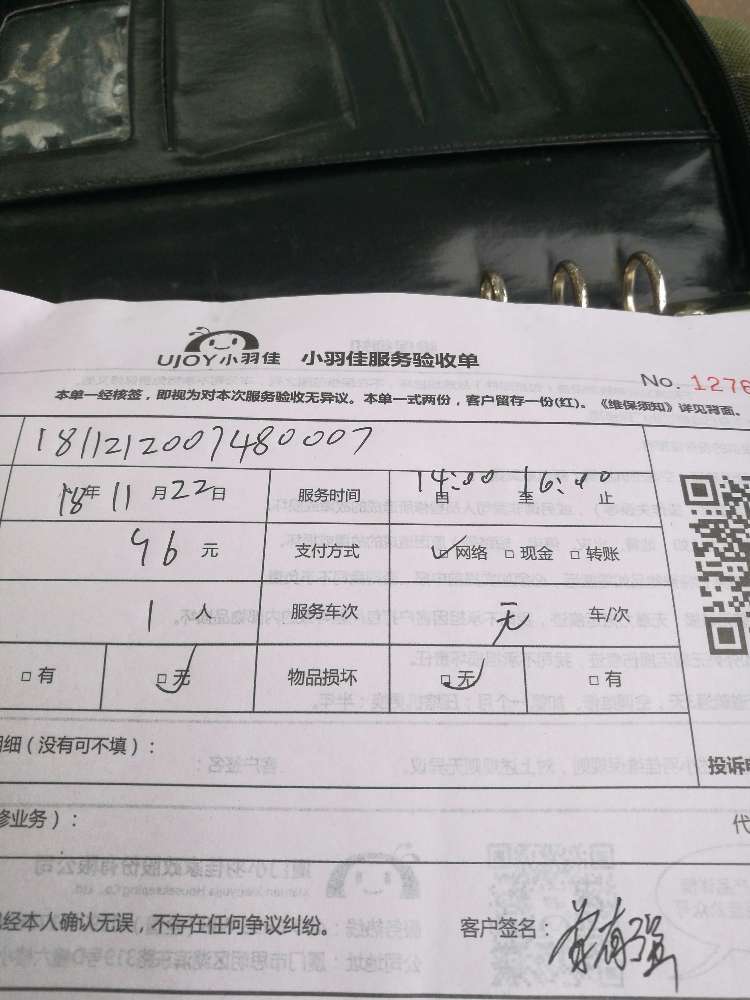 UJOY小羽佳 小羽佳服务验收单
No. 1278
本单一经核签，即视为对本次服务验收无异议。本单一式两份，客户留存一份(红)。《维保须知》详见背面。
1811212007480007
18年11月22日 服务时间 14:00由 至16:00止
96元 支付方式 ☑网络 □现金 □转账
1人 服务车次 无 车/次
□有 ☑无 物品损坏 ☑无 □有
细（没有可不填）：
投诉
修业务）：
代
经本人确认无误，不存在任何争议纠纷。 客户签名：